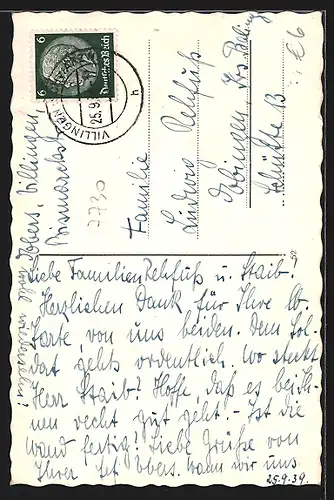 6 Deutsches Reich 6
VILLINGEN
25.9.
h
Familie
Ludwig Rehfuß
Ebingen, Krs Balingen
€6
2730
Ebbers, Villingen,
Bismarckstr
52
Liebe Familien Rehfuß u. Staib!
Herzlichen Dank für Ihre lb
Karte, von uns beiden. Dem Sol-
dat gehts ordentlich. Wo steckt
Herr Staib? Hoffe, daß es bei Ih-
nen recht gut geht. - Ist die
wand fertig? Liebe Grüße von
Ihrer Wann wir uns
wohl wiedersehen!
25.9.39.